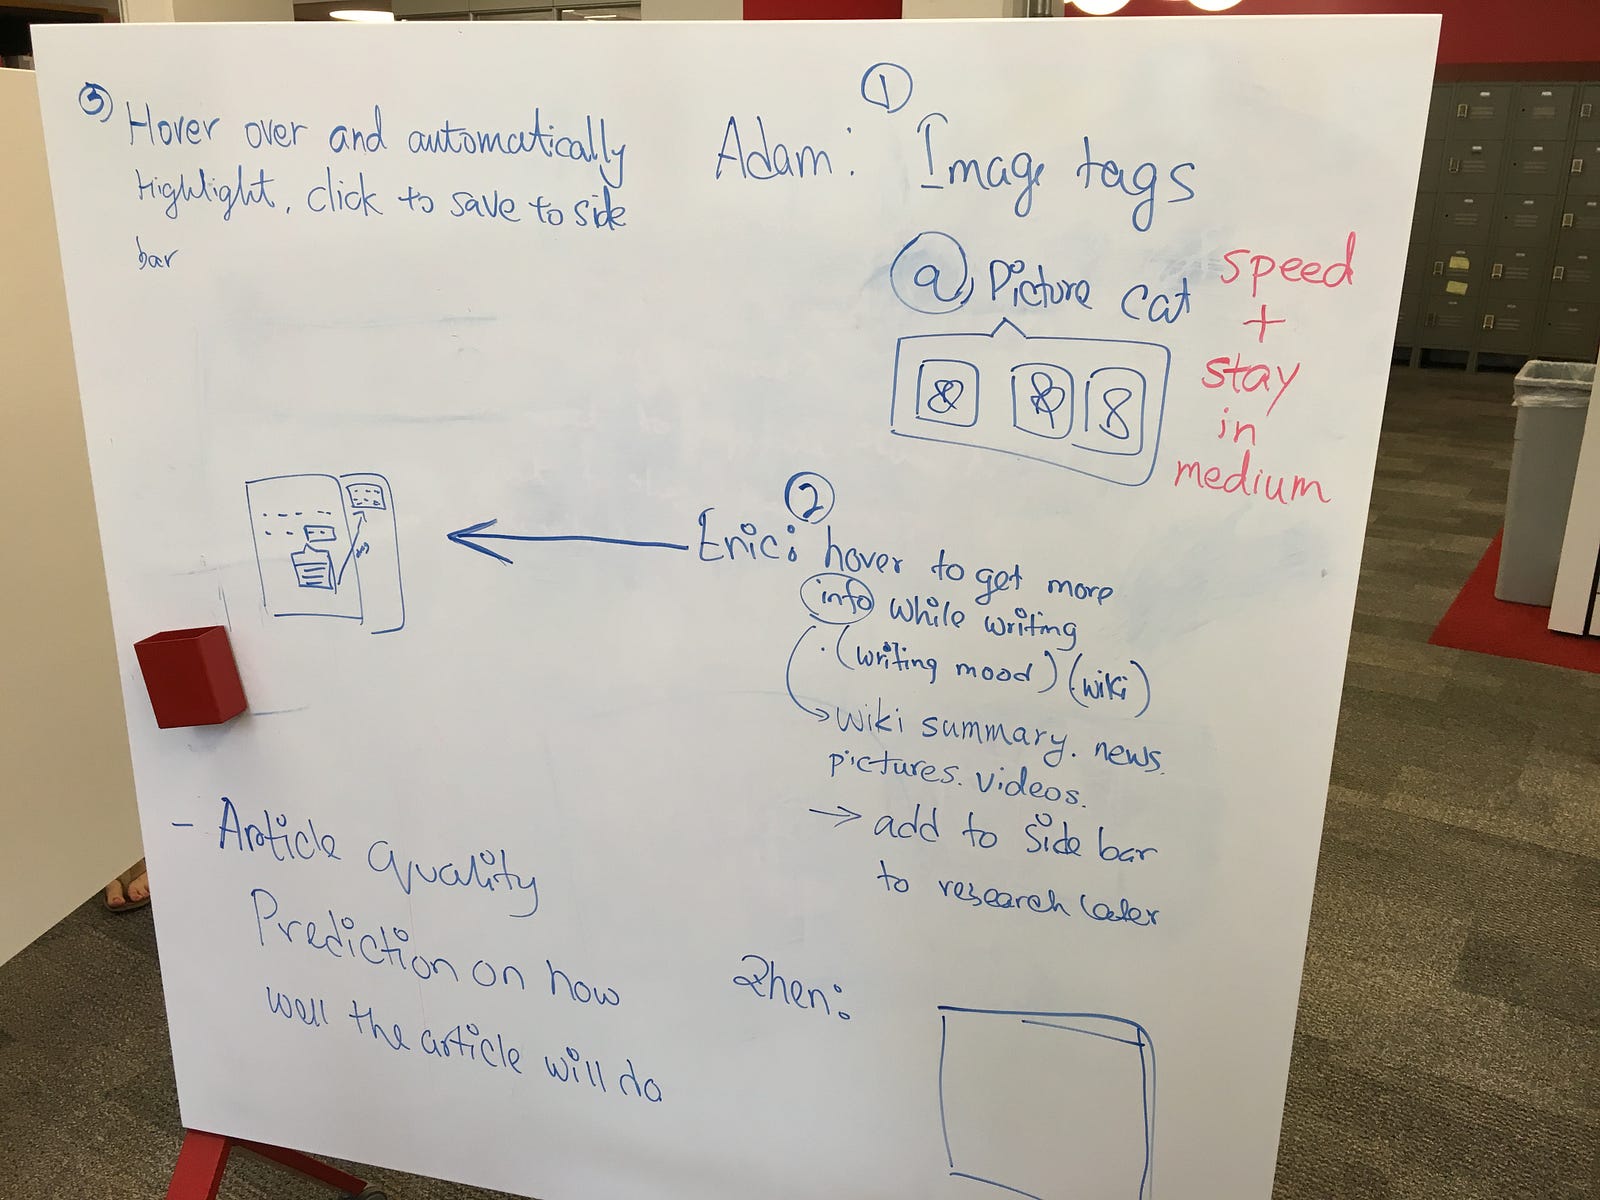 ③ Hover over and automatically
Highlight, click to save to side
bar
①
Adam: Image tags
ⓐ, Picture cat
speed
+
stay
in
medium
②
Eric: hover to get more
info while writing
· (writing mood) (wiki)
wiki summary. news.
pictures. videos.
→ add to side bar
to research later
- Article quality
Prediction on how
well the article will do
Zhen: